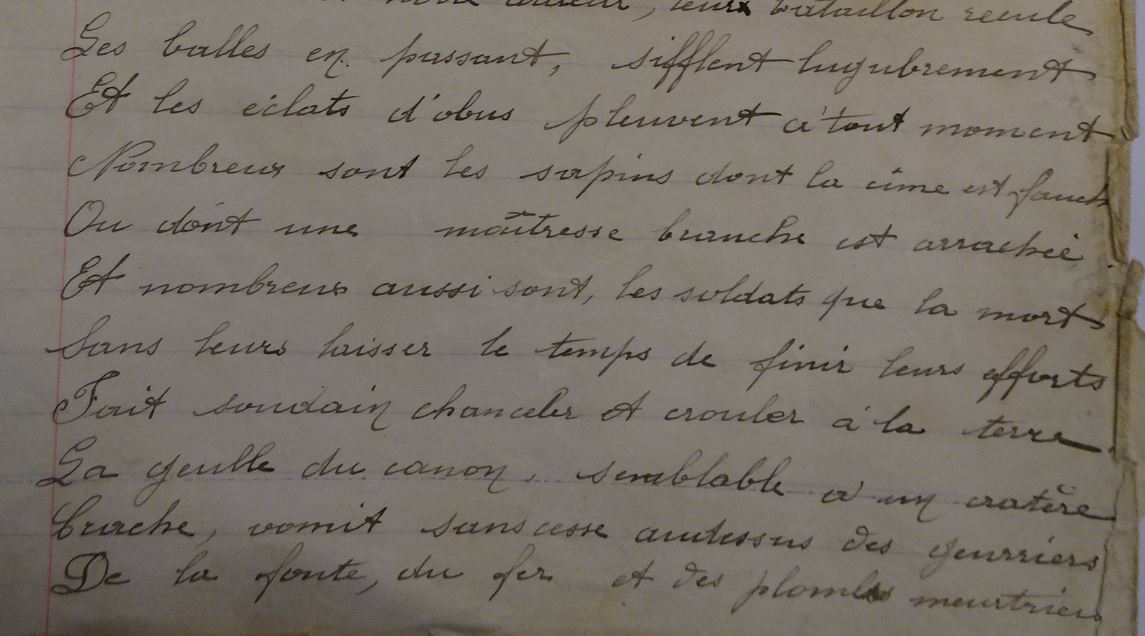 ardeur, leurs bataillon recule
Les balles en passant, sifflent lugubrement
Et les éclats d'obus pleuvent à tout moment
Nombreux sont les sapins dont la cime est fauch
Ou dont une maîtresse branche est arrachée.
Et nombreux aussi sont, les soldats que la mort
Sans leurs laisser le temps de finir leurs efforts
Fait soudain chanceler et crouler à la terre.
La geulle du canon, semblable à un cratère
Crache, vomit sans cesse audessus des geurriers
De la fonte, du fer et des plombs meurtriers